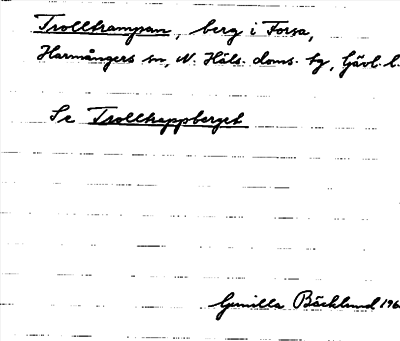 Trollkampan, berg i Forsa,
Harmångers sn, N. Häls. doms. sg, Gävl. l.
Se Trollkappberget
Gunilla Bäcklund 196